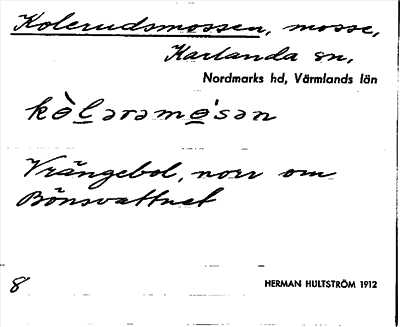 Kolerudsmossen, mosse,
Karlanda sn,
Nordmarks hd, Värmlands län
kòlərəmo̲'sən
Vrängebol, norr om
Bönsvattnet
8
HERMAN HULTSTRÖM 1912